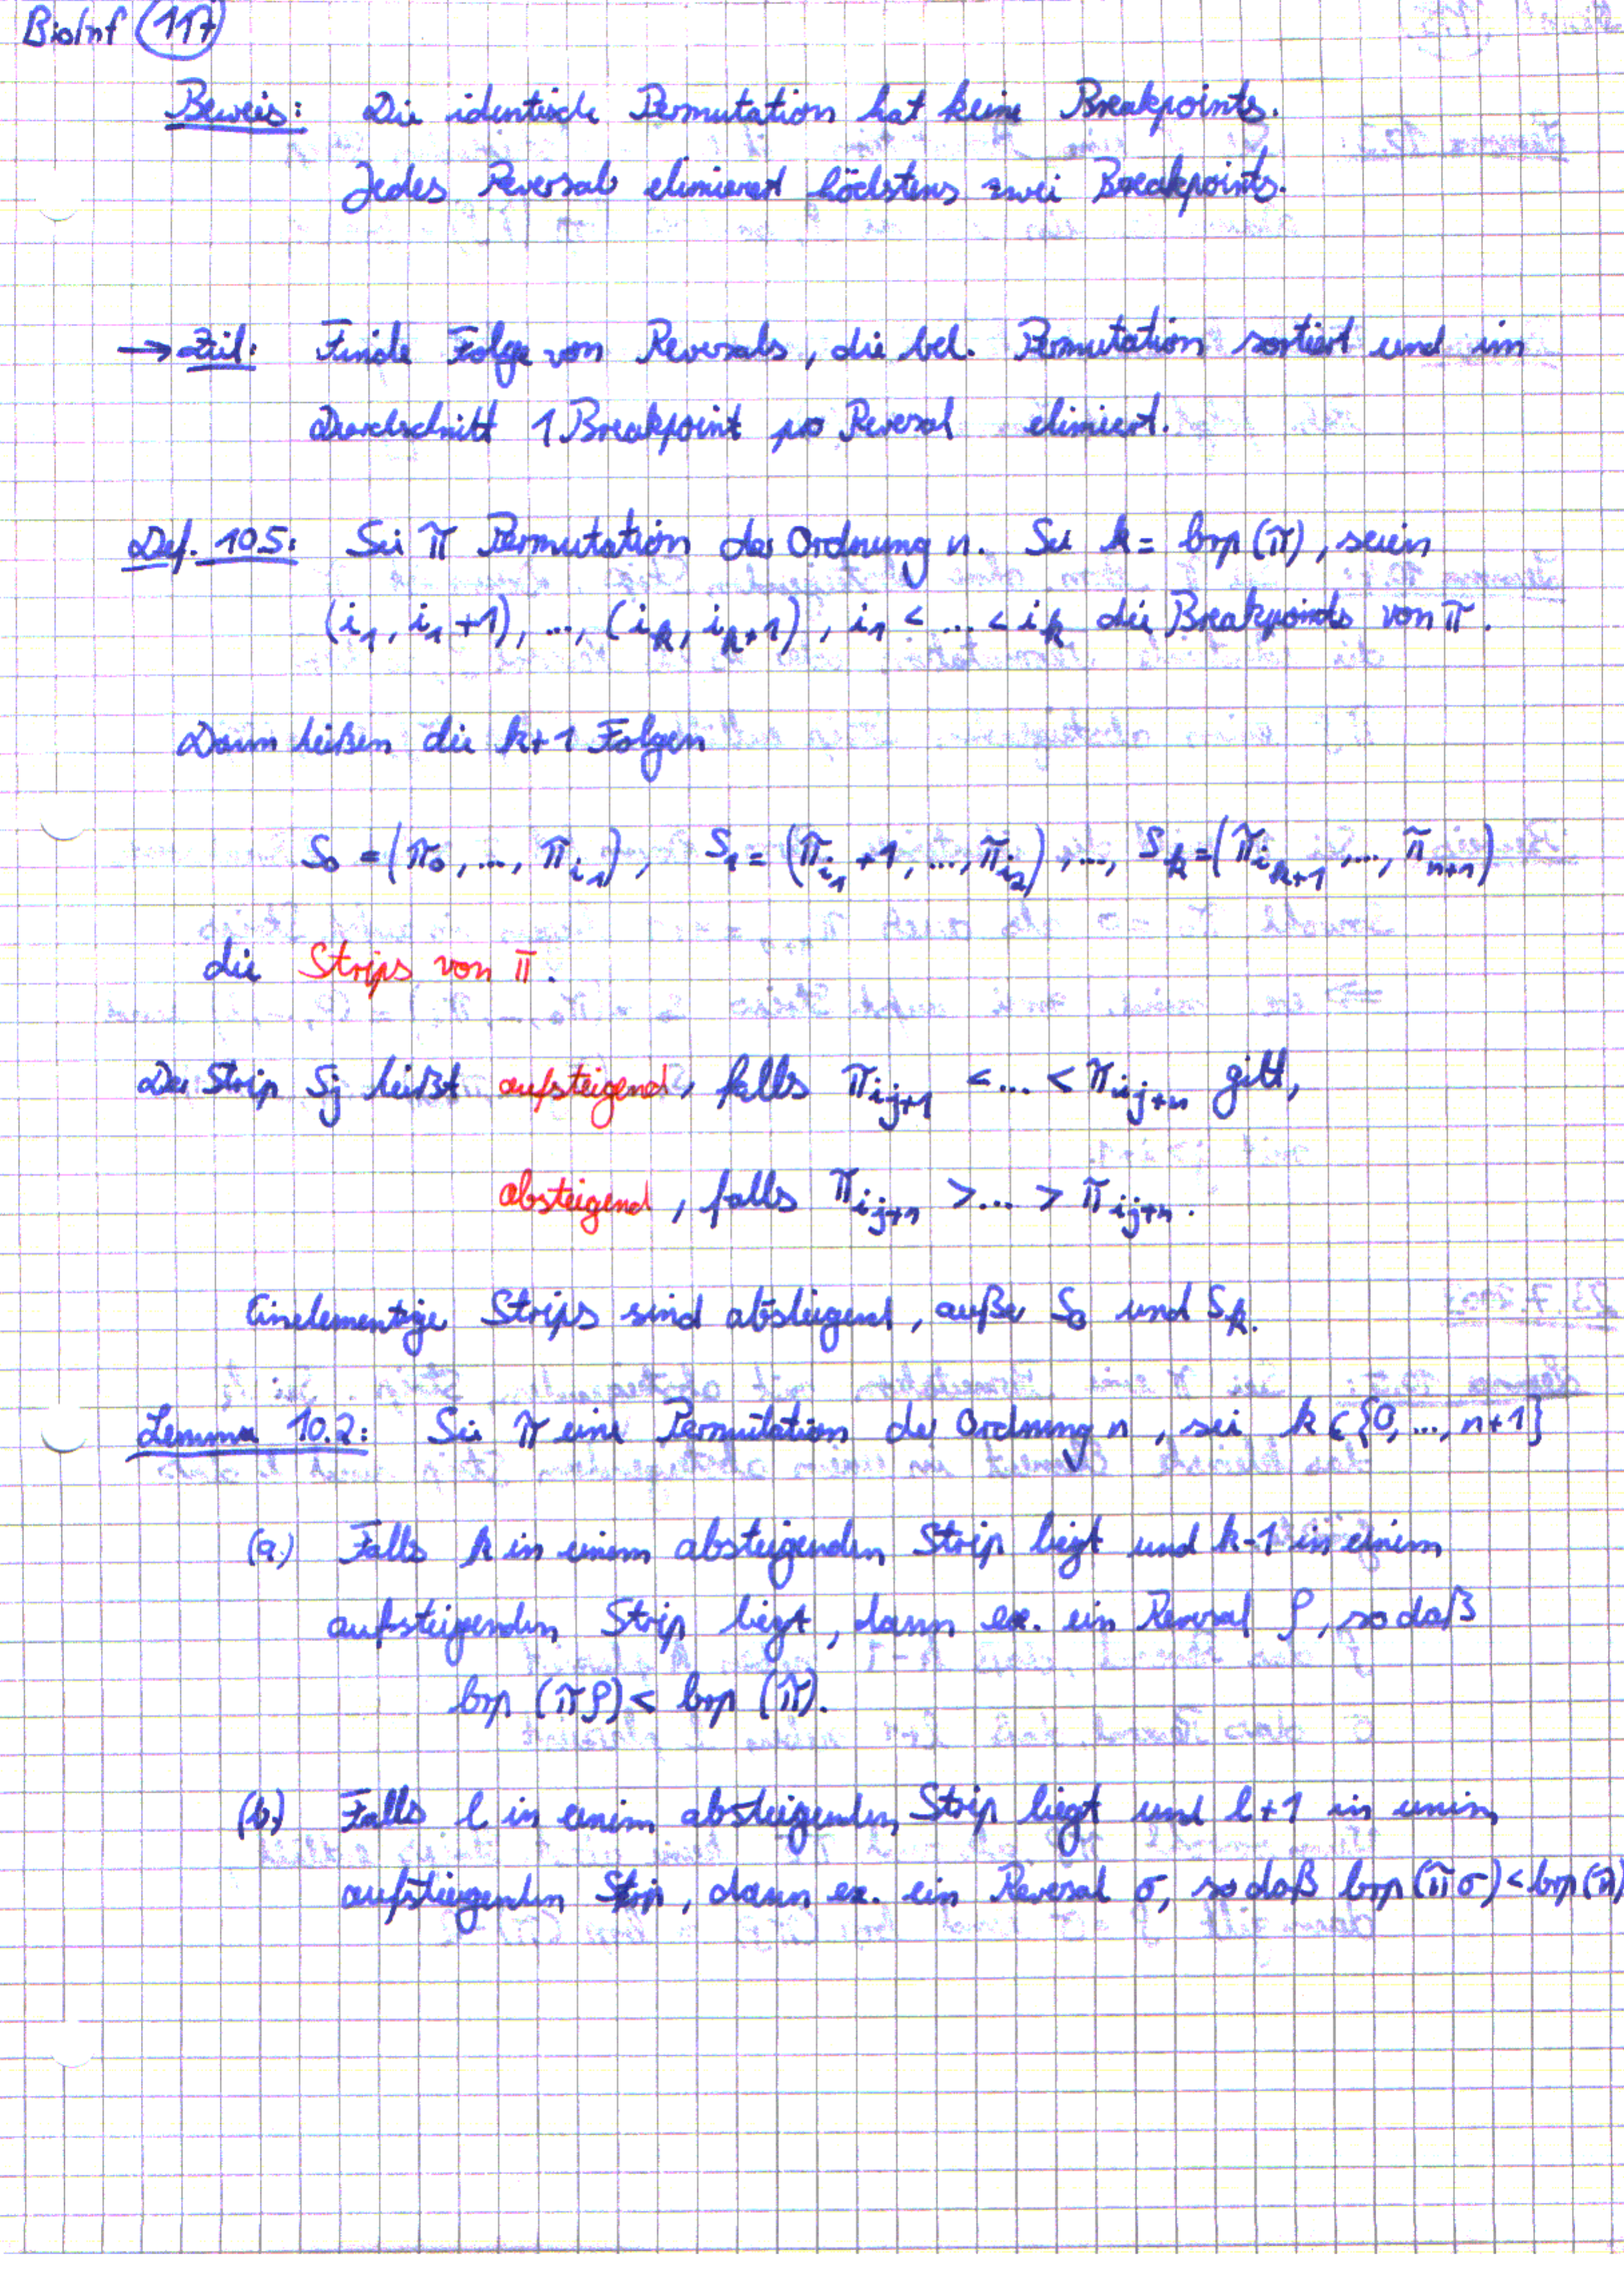 BioInf 117
Beweis: Die identische Permutation hat keine Breakpoints.
Jedes Reversal elimiert höchstens zwei Breakpoints.
→ Ziel: Finde Folge von Reversals, die bel. Permutation sortiert und im
Durchschnitt 1 Breakpoint pro Reversal elimiert.
Def. 10.5: Sei π Permutation der Ordnung n. Sei k = brp(π), seien
(i₁, i₁+1), ..., (i_k, i_{k+1}), i₁ < ... < i_k die Breakpoints von π.
Dann heißen die k+1 Folgen
S₀ = (π₀, ..., π_{i₁}), S₁ = (π_{i₁}+1, ..., π_{i₂}), ..., S_k = (π_{i_{k+1}}, ..., π_{n+1})
die Strips von π.
Der Strip Sj heißt aufsteigend, falls π_{i_{j+1}} < ... < π_{i_{j+n}} gilt,
absteigend, falls π_{i_{j+1}} > ... > π_{i_{j+n}}.
Einelementige Strips sind absteigend, außer S₀ und S_k.
Lemma 10.2: Sei π eine Permutation der Ordnung n, sei k ∈ {0, ..., n+1}
(a.) Falls k in einem absteigenden Strip liegt und k-1 in einem
aufsteigenden Strip liegt, dann ex. ein Reversal ρ, so daß
brp (πρ) < brp (π).
(b.) Falls l in einem absteigenden Strip liegt und l+1 in einem
aufsteigenden Strip, dann ex. ein Reversal σ, so daß brp(πσ) < brp(π)